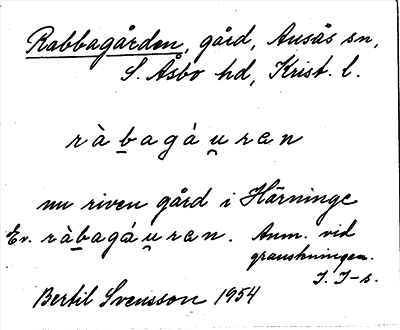 Rabbagården, gård, Ausås sn,
S. Åsbo hd, Krist. l.
ràb̲agáu̯ren
nu riven gård i Härninge
Ev. rȧ̀b̲agáu̯ren. Anm. vid
granskningen.
I. I-s.
Bertil Svensson 1954